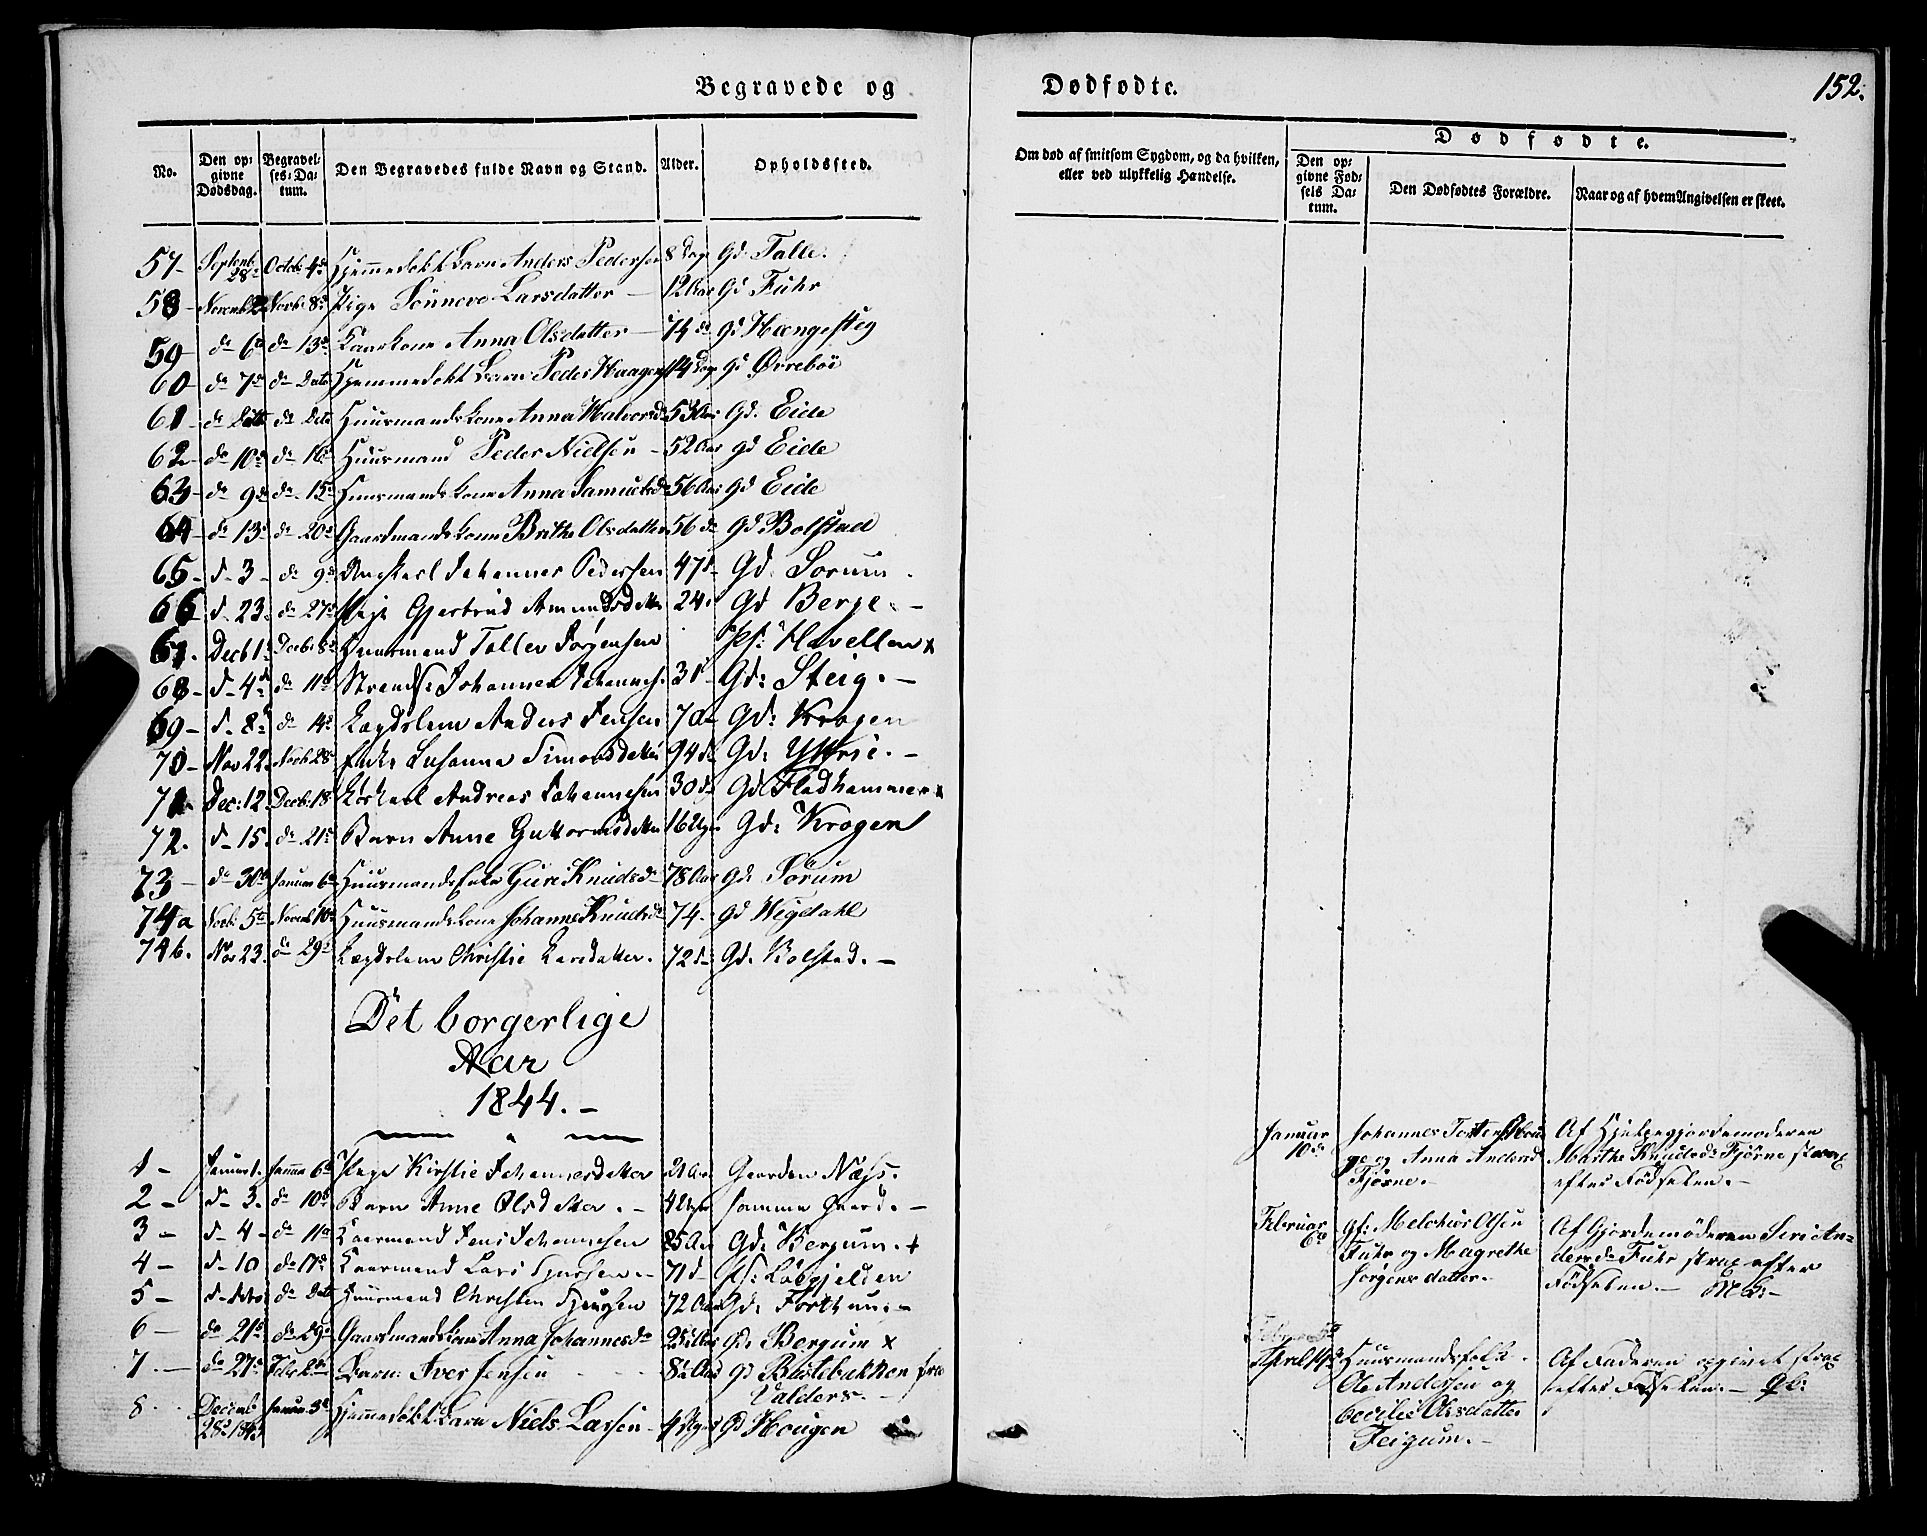 Begravede og
Dødfødte.
152.
No.
Den opgivne Dødsdag.
Begravelses-Datum.
Den Begravedes fulde Navn og Stand.
Alder.
Opholdssted.
Om død af smitsom Sygdom, og da hvilken, eller ved ulykkelig Hændelse.
Dødfødte.
Den opgivne Fødsels Datum.
Den Dødfødtes Forældre.
Naar og af hvem Angivelsen er skeet.
57- Septemb 28de Octob 4de Hjemmedøbt Barn Anders Pedersen 8 Dage Gd. Talle.
58- Novemb 2 Novb. 8de Pige Sünneve Larsdatter - 12 Aar Gd Fuhr
59- do 6te do 13de Kaarkone Anna Olsdatter - 74 do Gd Hængesteg
60- do 7de do Dato Hjemmedøbt Barn Peder Haagens 14 Dage Gd Ørrebøe
61- do Dato do Dato Huusmandskone Anna Halvorsd. 53 Aar Gd. Eide
62- do 10de do 16de Huusmand Peder Nielsen - 52 Aar Gd Eide
63- do 9de do 15de Huusmandskone Anna Samuelsd. 56 Aar Gd Eide
64- do 13de do 20de Gaardmandskone Brithe Olsdatter 56 do Gd Bolstad
65- d- 3- do 9de Johannes Pedersen 47 d- Gd. Sorum.
66 d- 23. do 27de Pige Gjertrud Amundsdatter 24. Gd Berge. -
67. Decb 1. Decb: 8de Huusmand Tollev Jørgensen Ps: Havellen x
68- d- 4de do 11te Johannes Johannes. 31- Gd: Steig. -
69- d- 8de do 14de Lægdslem Anders Jensen 70 Gd: Krogen
70- Nov 22. Novb 28de Enke Susanna Simonsdatter 94 d- Gd: Yttrie. -
71. Dec: 12. Decb: 18 Andreas Johannesen 30 d- Gd Fladhammer x
72. d- 15. do 21de Barn Anne Guttormsdatter 16 Uger Gd: Krogen
73- do 30te Januar 6te Huusmands Enke Guri Knudsd. 78 Aar Gd. Sörum
74a Novb. 5te Novemb 10de Huusmandskone Johanne Knudsd. 74- Gd Wigdahl
74b. Nov 23. do 29de Lægdslem Christie Larsdatter. 72 d- Gd. Bolstad. -
Det borgerlige
Aar
1844. -
1- Januar 1. Januar 6te Pige Kirstie Johannesdatter 21 Aar Gaarden Næss.
2- d- 3. do 10de Barn Anne Olsdatter. - 4 Uger samme Gaard. -
3- d- 4- do 11te Kaarmand Jens Johannesen 85 Aar Gd: Bergum. +
4- d- 10 do 17de Kaarmand Lars - 71 d-
5- d- dato do Dato Huusmand Christen 72 Aar Gd: Forthun. -
6- do 21de do 29de Gaardmandskone Anna Johannesdr 25 Aar Gd. Bergum x
7.- do 27de Febr 2den Barn: Iver Jensen 8½ Aar Gd Bastebakken fra Valders. -
8. Decemb 28de 1843 Januar 3de Hjemmedøbt Barn Niels Larsen - 4 Uger Gd Hougen
Januar 10de
Johannes og Anna Andersd. Fjørne. -
Af Hjelpegjordemoderen
Marthe Knudsdr Fjörne strax
efter Födselen. -
Februar 6te
Gf: Melchior Olsen
Fuhr og Magrethe
Jørgensdatter. -
Af Gjordemöderen Siri Andersdr
Fuhr strax efter
Födselen. -
April 14de
Huusmandsfolk
Ole Andersen og
Cecilie Olsdatter
Feigum. -
Af Faderen opgivet strax
efter Födselen. -